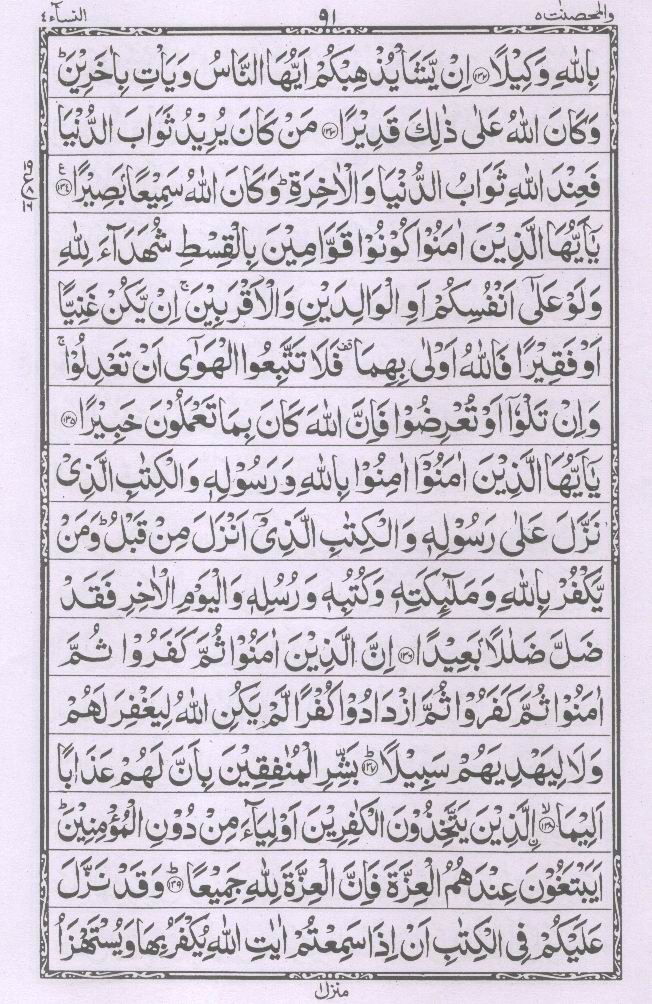 والمحصنت ٥ ٩١ النسآء ٤
بِاللّٰهِ وَكِيْلًا ﴿۱۳۲﴾ اِنْ يَّشَاْ يُذْهِبْكُمْ اَيُّهَا النَّاسُ وَيَاْتِ بِاٰخَرِيْنَ ؕ
وَكَانَ اللّٰهُ عَلٰى ذٰلِكَ قَدِيْرًا ﴿۱۳۳﴾ مَنْ كَانَ يُرِيْدُ ثَوَابَ الدُّنْيَا
فَعِنْدَ اللّٰهِ ثَوَابُ الدُّنْيَا وَالْاٰخِرَةِ ؕ وَكَانَ اللّٰهُ سَمِيْعًۢا بَصِيْرًا ﴿۱۳۴﴾ ع
يٰۤاَيُّهَا الَّذِيْنَ اٰمَنُوْا كُوْنُوْا قَوَّامِيْنَ بِالْقِسْطِ شُهَدَآءَ لِلّٰهِ
وَلَوْ عَلٰۤى اَنْفُسِكُمْ اَوِ الْوَالِدَيْنِ وَالْاَقْرَبِيْنَ ۚ اِنْ يَّكُنْ غَنِيًّا
اَوْ فَقِيْرًا فَاللّٰهُ اَوْلٰى بِهِمَا قف فَلَا تَتَّبِعُوا الْهَوٰۤى اَنْ تَعْدِلُوْا ۚ
وَاِنْ تَلْوٗۤا اَوْ تُعْرِضُوْا فَاِنَّ اللّٰهَ كَانَ بِمَا تَعْمَلُوْنَ خَبِيْرًا ﴿۱۳۵﴾
يٰۤاَيُّهَا الَّذِيْنَ اٰمَنُوْۤا اٰمِنُوْا بِاللّٰهِ وَرَسُوْلِهٖ وَالْكِتٰبِ الَّذِىْ
نَزَّلَ عَلٰى رَسُوْلِهٖ وَالْكِتٰبِ الَّذِىْۤ اَنْزَلَ مِنْ قَبْلُ ؕ وَمَنْ
يَّكْفُرْ بِاللّٰهِ وَمَلٰٓئِكَتِهٖ وَكُتُبِهٖ وَرُسُلِهٖ وَالْيَوْمِ الْاٰخِرِ فَقَدْ
ضَلَّ ضَلٰلًاۢ بَعِيْدًا ﴿۱۳۶﴾ اِنَّ الَّذِيْنَ اٰمَنُوْا ثُمَّ كَفَرُوْا ثُمَّ
اٰمَنُوْا ثُمَّ كَفَرُوْا ثُمَّ ازْدَادُوْا كُفْرًا لَّمْ يَكُنِ اللّٰهُ لِيَغْفِرَ لَهُمْ
وَلَا لِيَهْدِيَهُمْ سَبِيْلًا ؕ﴿۱۳۷﴾ بَشِّرِ الْمُنٰفِقِيْنَ بِاَنَّ لَهُمْ عَذَابًا
اَلِيْمَا ۙ﴿۱۳۸﴾ اِۨلَّذِيْنَ يَتَّخِذُوْنَ الْكٰفِرِيْنَ اَوْلِيَآءَ مِنْ دُوْنِ الْمُؤْمِنِيْنَ ؕ
اَيَبْتَغُوْنَ عِنْدَهُمُ الْعِزَّةَ فَاِنَّ الْعِزَّةَ لِلّٰهِ جَمِيْعًا ؕ﴿۱۳۹﴾ وَقَدْ نَزَّلَ
عَلَيْكُمْ فِى الْكِتٰبِ اَنْ اِذَا سَمِعْتُمْ اٰيٰتِ اللّٰهِ يُكْفَرُ بِهَا وَيُسْتَهْزَاُ
منزل ١